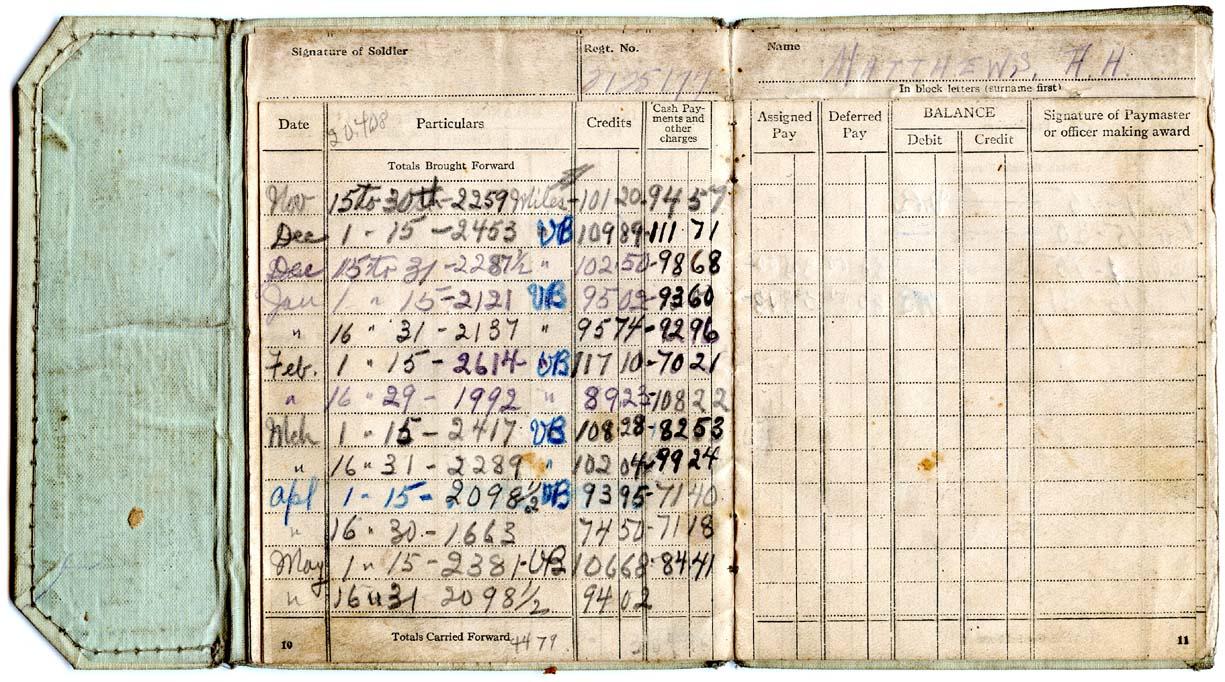 Signature of Soldier Regt. No. Name
2125177 MATTHEWS, H.H.
In block letters (surname first)
Date 20.408 Particulars Credits Cash Payments and other charges Assigned Pay Deferred Pay BALANCE Debit Credit Signature of Paymaster or officer making award
Totals Brought Forward
Nov 15 to 30th - 2259 Miles - 101 20 - 94 57
Dec 1 - 15 - 2453 VB 109 89 - 111 71
Dec 15 to 31 - 2287½ " 102 50 - 98 68
Jan 1 " 15 - 2121 VB 95 02 - 93 60
" 16 " 31 - 2137 " 95 74 - 92 96
Feb. 1 " 15 - 2614 VB 117 10 - 70 21
" 16 " 29 - 1992 " 89 23 - 108 22
Mch 1 " 15 - 2417 VB 108 28 - 82 53
" 16 " 31 - 2289 " 102 04 - 99 24
Apl 1 - 15 - 2098½ VB 93 95 - 71 40
" 16 " 30 - 1663 74 50 - 71 18
May 1 " 15 - 2381 - VB 106 68 - 84 41
" 16 " 31 2098½ 94 02
Totals Carried Forward 4479
10 11